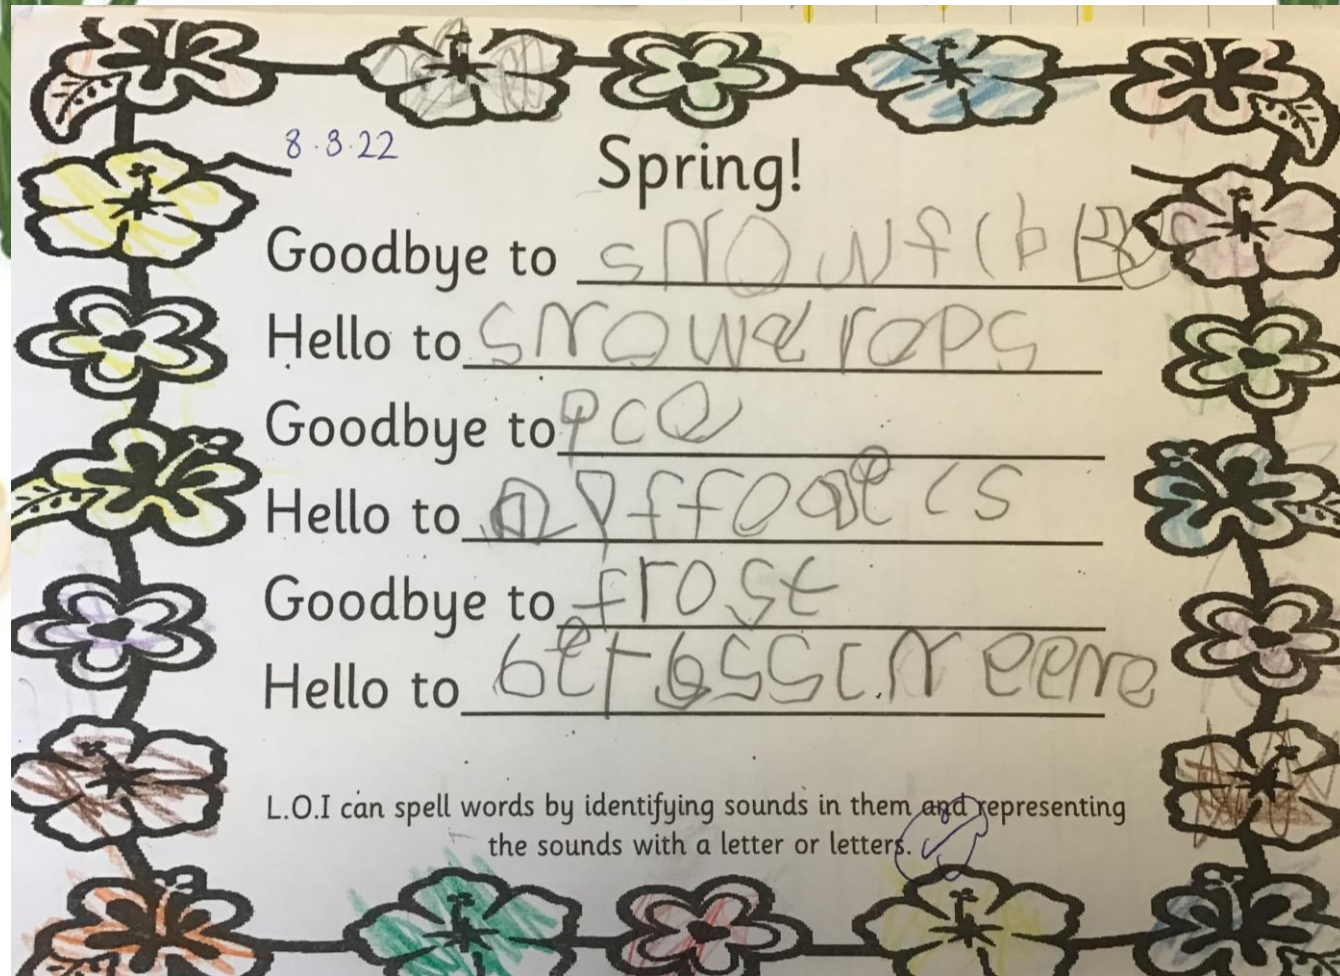 8.3.22
Spring!
Goodbye to
Hello to snowdrops
Goodbye to
Hello to
Goodbye to frost
Hello to
L.O.I can spell words by identifying sounds in them and representing
the sounds with a letter or letters.